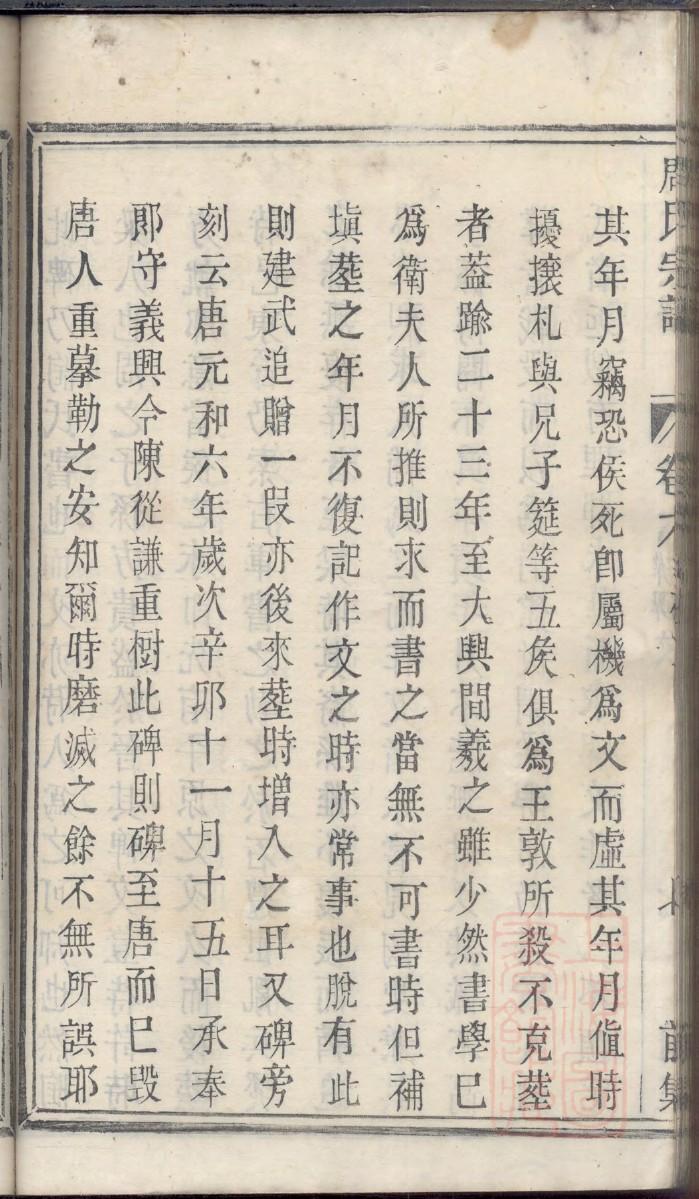 周氏宗譜
卷六
前集
其年月竊恐侯死卽屬機爲文而虛其年月値時
擾攘札與兄子筵等五侯俱爲王敦所殺不克塟
者葢踰二十三年至大興間羲之雖少然書學已
爲衛夫人所推則求而書之當無不可書時但補
塡塟之年月不復記作文之時亦常事也脫有此
則建武追贈一段亦後來塟時增入之耳又碑旁
刻云唐元和六年歲次辛卯十一月十五日承奉
郎守義興令陳從謙重樹此碑則碑至唐而已毀
唐人重摹勒之安知爾時磨滅之餘不無所誤耶